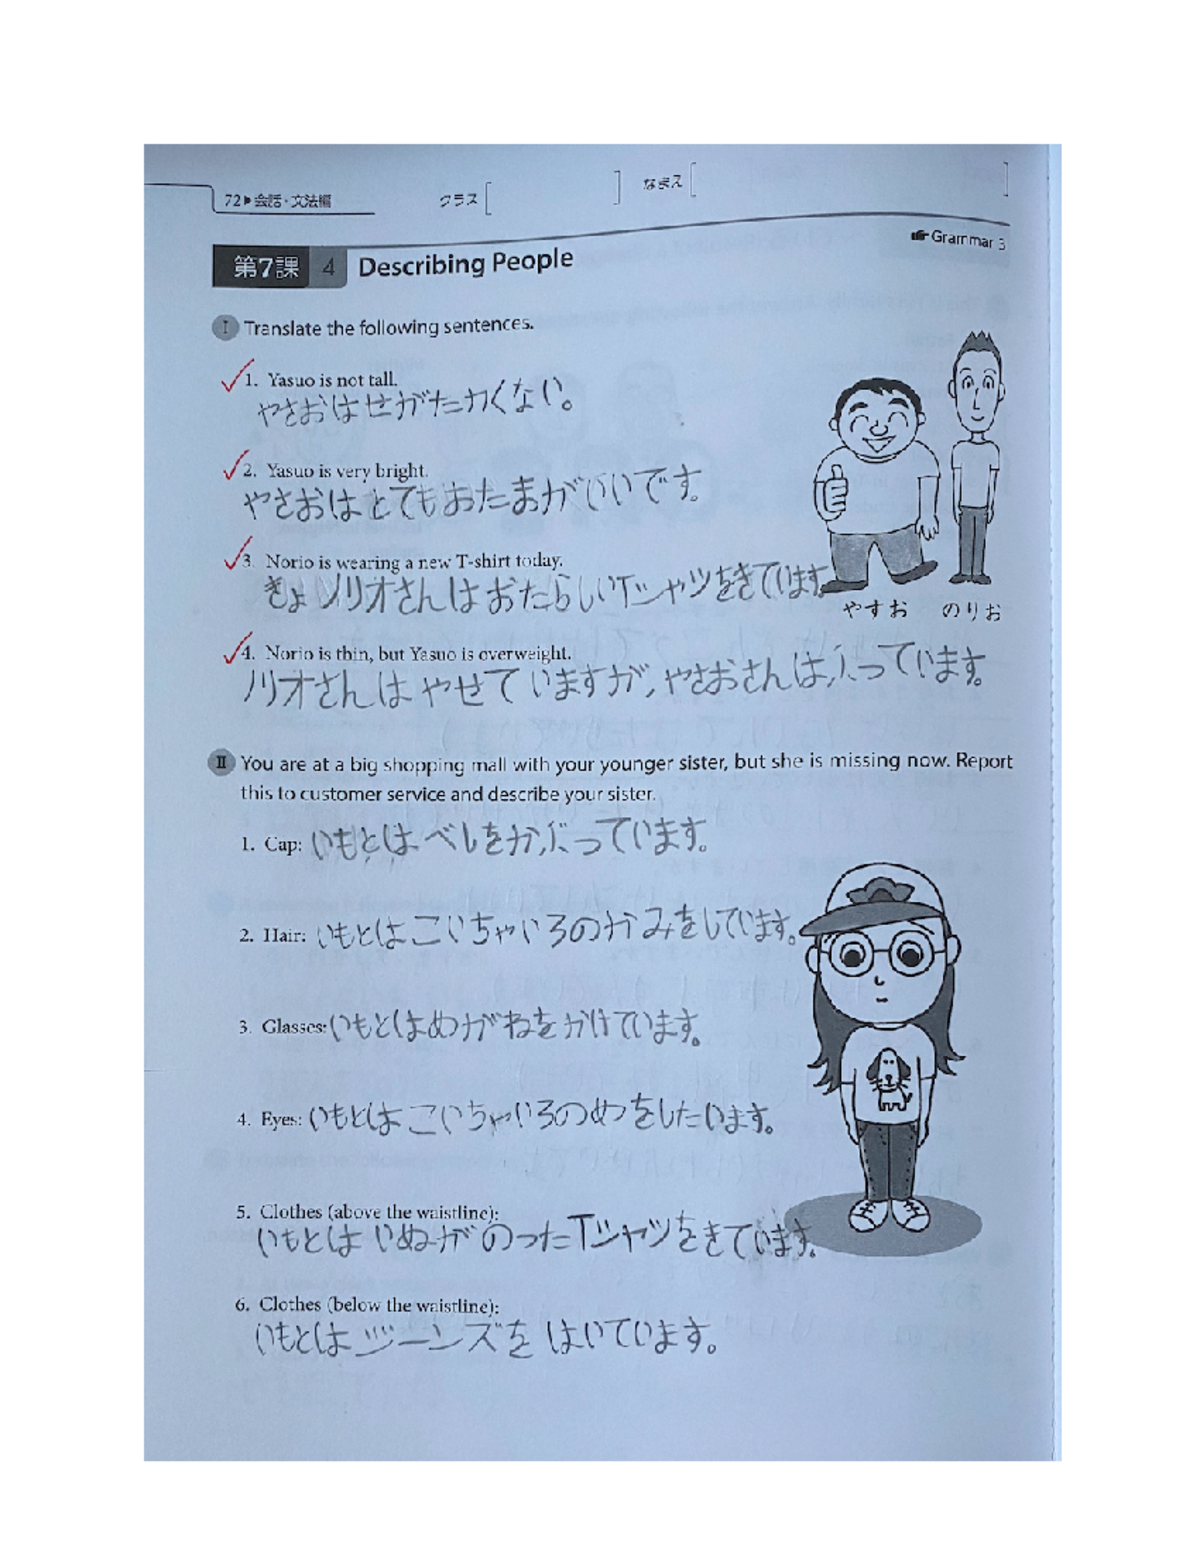 72▶会話・文法編 クラス[ ] なまえ[ ]
☛Grammar 3
第7課 4 Describing People
I Translate the following sentences.
1. Yasuo is not tall.
やさおはせがたかくない。
2. Yasuo is very bright.
やさおはとてもおたまがいいです。
3. Norio is wearing a new T-shirt today.
きょノリオさんはおたらしいTシャツをきています
やすお のりお
4. Norio is thin, but Yasuo is overweight.
ノリオさんはやせていますが,やさおさんは,ふっています。
II You are at a big shopping mall with your younger sister, but she is missing now. Report
this to customer service and describe your sister.
1. Cap: いもとはべしをかぶっています。
2. Hair: いもとはこいちゃいろのかみをしています。
3. Glasses: いもとはめがねをかけています。
4. Eyes: いもとはこいちゃいろのめつをしたいます。
5. Clothes (above the waistline):
いもとはいぬがのったTシャツをきています。
6. Clothes (below the waistline):
いもとはジーンズをはいています。